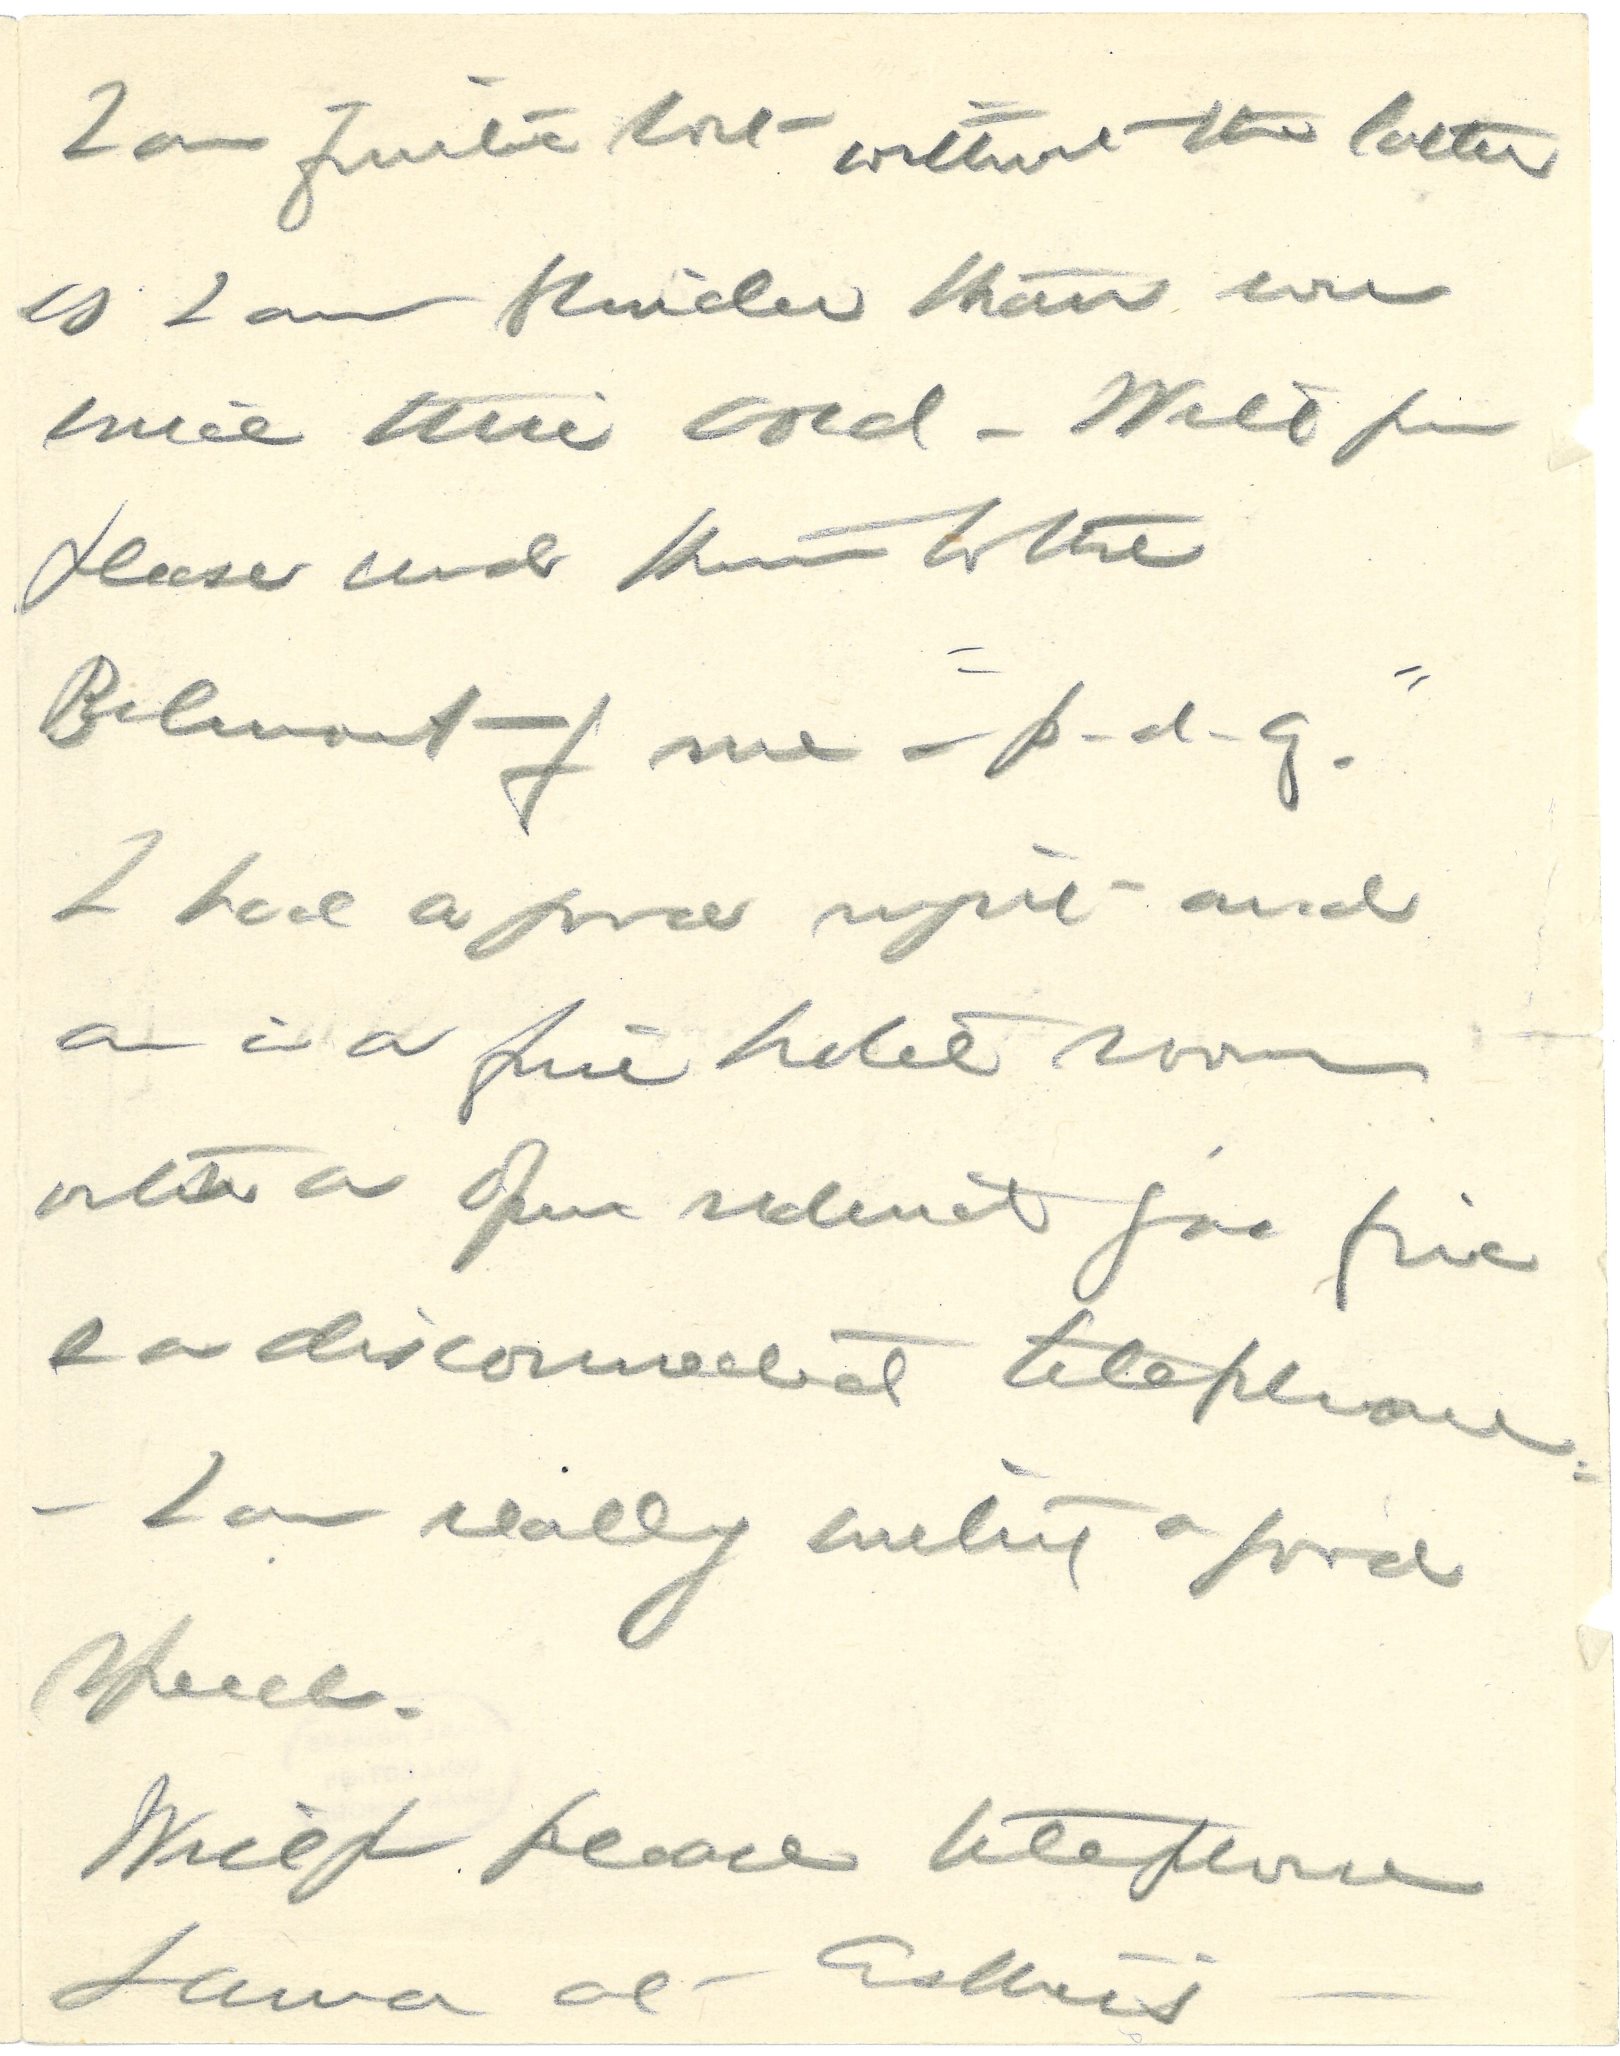 I am quite lost without the latter
as I am blinder than ever
with this cold - Will you
please send them to the
Belmont - for me - "p-d-q."
I had a good night - and
am in a fine hotel room
with a open fire
& a disconnected telephone -
- I am really a good
Will you please telephone
Laura at - Esther's -